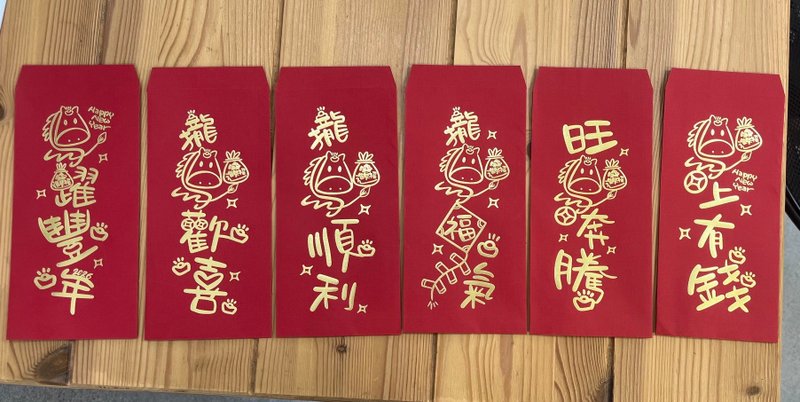 Happy
New
Year
躍
豐
2026
年
攏
歡
喜
攏
順
利
攏
福
氣
旺
奔
騰
Happy
New
Year
上
有
錢